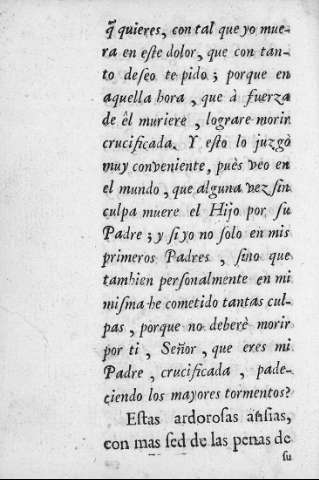 q̃ quieres, con tal que yo mue-
ra en eſte dolor, que con tan-
to deſeo te pido; porque en
aquella hora, que à fuerza
de èl muriere, lograre morir
crucificada. Y eſto lo juzgo
muy conveniente, pues veo en
el mundo, que alguna vez ſin
culpa muere el Hijo por ſu
Padre; y ſi yo no ſolo en mis
primeros Padres, ſino que
tambien perſonalmente en mi
miſma he cometido tantas cul-
pas, porque no deberè morir
por ti, Señor, que eres mi
Padre, crucificada, pade-
ciendo los mayores tormentos?
Eſtas ardoroſas anſias,
con mas ſed de las penas de
ſu